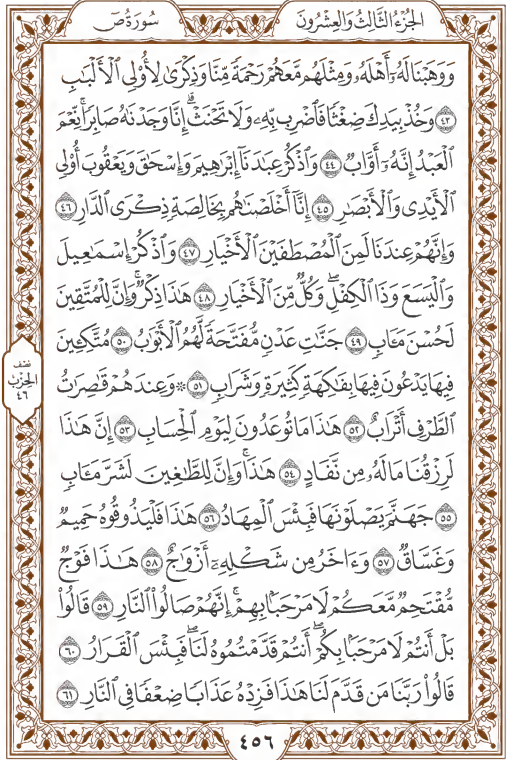 سُورَةُ صٓ
الجُزْءُ الثَّالِثُ وَالعِشْرُونَ
وَوَهَبْنَا لَهُۥٓ أَهْلَهُۥ وَمِثْلَهُم مَّعَهُمْ رَحْمَةً مِّنَّا وَذِكْرَىٰ لِأُو۟لِى ٱلْأَلْبَٰبِ
٤٣ وَخُذْ بِيَدِكَ ضِغْثًا فَٱضْرِب بِّهِۦ وَلَا تَحْنَثْ ۗ إِنَّا وَجَدْنَٰهُ صَابِرًا ۚ نِّعْمَ
ٱلْعَبْدُ ۖ إِنَّهُۥٓ أَوَّابٌ ٤٤ وَٱذْكُرْ عِبَٰدَنَآ إِبْرَٰهِيمَ وَإِسْحَٰقَ وَيَعْقُوبَ أُو۟لِى
ٱلْأَيْدِى وَٱلْأَبْصَٰرِ ٤٥ إِنَّآ أَخْلَصْنَٰهُم بِخَالِصَةٍ ذِكْرَى ٱلدَّارِ ٤٦
وَإِنَّهُمْ عِندَنَا لَمِنَ ٱلْمُصْطَفَيْنَ ٱلْأَخْيَارِ ٤٧ وَٱذْكُرْ إِسْمَٰعِيلَ
وَٱلْيَسَعَ وَذَا ٱلْكِفْلِ ۖ وَكُلٌّ مِّنَ ٱلْأَخْيَارِ ٤٨ هَٰذَا ذِكْرٌ ۚ وَإِنَّ لِلْمُتَّقِينَ
لَحُسْنَ مَـَٔابٍ ٤٩ جَنَّٰتِ عَدْنٍ مُّفَتَّحَةً لَّهُمُ ٱلْأَبْوَٰبُ ٥٠ مُتَّكِـِٔينَ
فِيهَا يَدْعُونَ فِيهَا بِفَٰكِهَةٍ كَثِيرَةٍ وَشَرَابٍ ٥١ ۞ وَعِندَهُمْ قَٰصِرَٰتُ
ٱلطَّرْفِ أَتْرَابٌ ٥٢ هَٰذَا مَا تُوعَدُونَ لِيَوْمِ ٱلْحِسَابِ ٥٣ إِنَّ هَٰذَا
لَرِزْقُنَا مَا لَهُۥ مِن نَّفَادٍ ٥٤ هَٰذَا ۚ وَإِنَّ لِلطَّٰغِينَ لَشَرَّ مَـَٔابٍ
٥٥ جَهَنَّمَ يَصْلَوْنَهَا فَبِئْسَ ٱلْمِهَادُ ٥٦ هَٰذَا فَلْيَذُوقُوهُ حَمِيمٌ
وَغَسَّاقٌ ٥٧ وَءَاخَرُ مِن شَكْلِهِۦٓ أَزْوَٰجٌ ٥٨ هَٰذَا فَوْجٌ
مُّقْتَحِمٌ مَّعَكُمْ ۖ لَا مَرْحَبًۢا بِهِمْ ۚ إِنَّهُمْ صَالُوا۟ ٱلنَّارِ ٥٩ قَالُوا۟
بَلْ أَنتُمْ لَا مَرْحَبًۢا بِكُمْ ۖ أَنتُمْ قَدَّمْتُمُوهُ لَنَا ۖ فَبِئْسَ ٱلْقَرَارُ ٦٠
قَالُوا۟ رَبَّنَا مَن قَدَّمَ لَنَا هَٰذَا فَزِدْهُ عَذَابًا ضِعْفًا فِى ٱلنَّارِ ٦١
نصف
الحزب
٤٦
٤٥٦